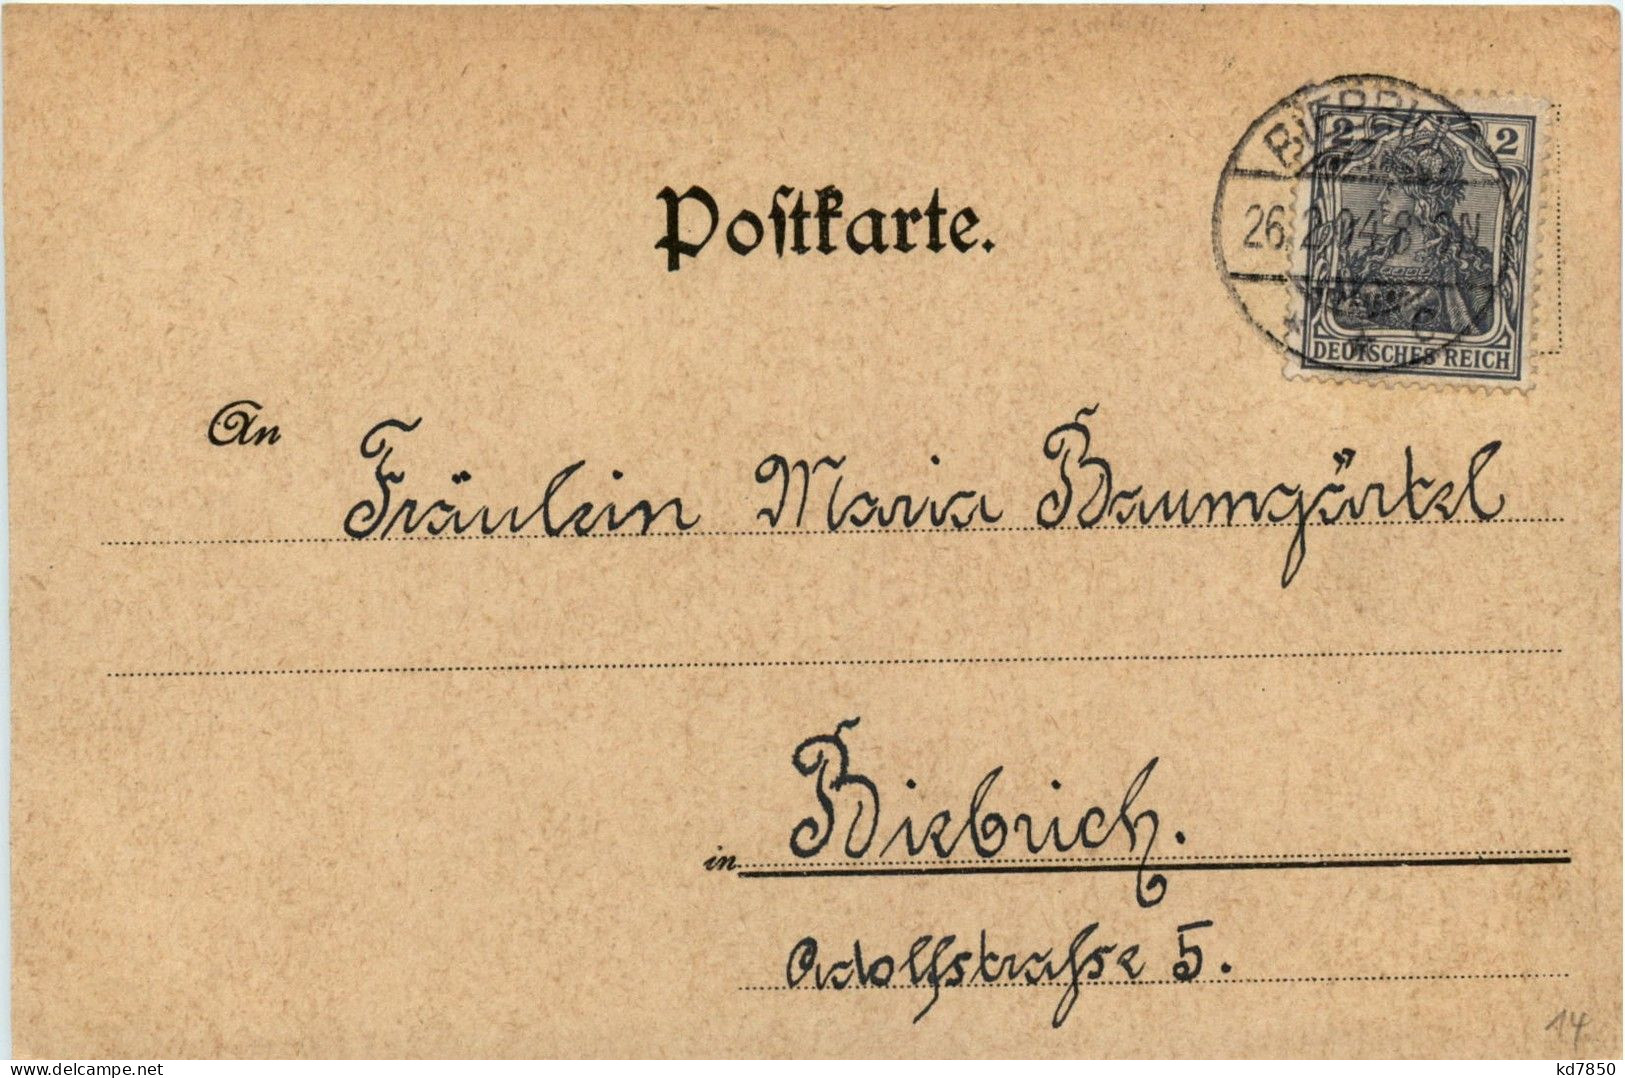 Postkarte.
BIEBRICH
26.2.04.8-9N.
* c
2 2
DEUTSCHES REICH
An Fräulein Maria Baumgärtel
in Biebrich.
Adolfstrasse 5.
14
www.delcampe.net
kd7850